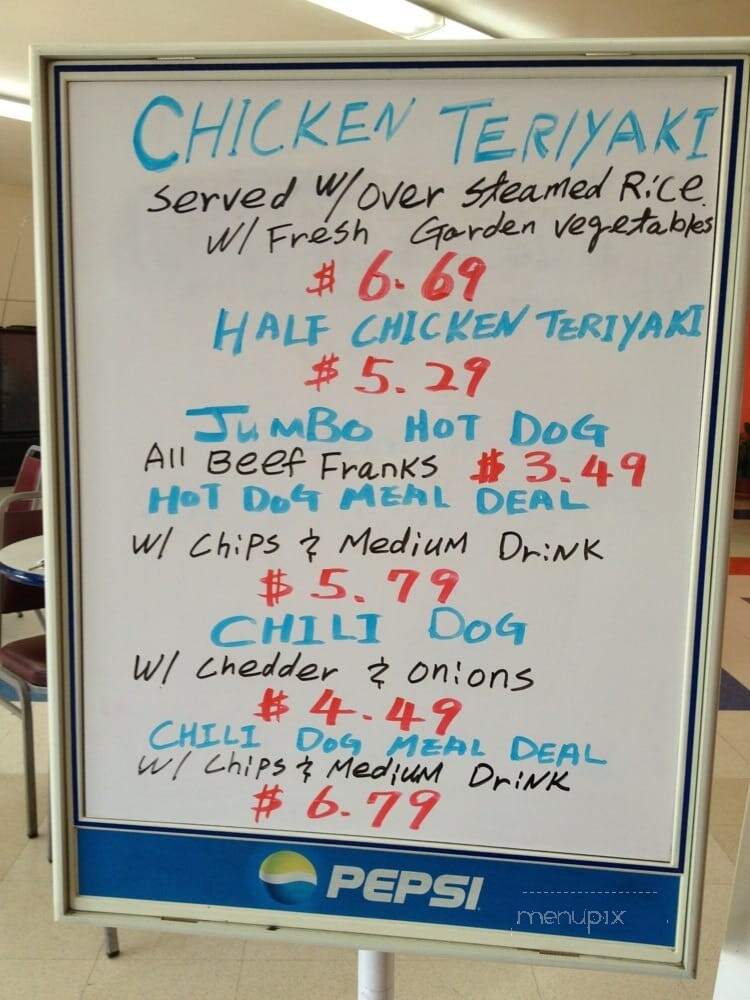 CHICKEN TERIYAKI
Served W/over Steamed Rice.
W/ Fresh Garden vegetables
$ 6.69
HALF CHICKEN TERIYAKI
$ 5.29
JUMBO HOT DOG
All Beef Franks $ 3.49
HOT DOG MEAL DEAL
W/ Chips & Medium Drink
$ 5.79
CHILI DOG
W/ Chedder & onions
$ 4.49
CHILI DOG MEAL DEAL
W/ Chips & Medium Drink
$ 6.79
PEPSI
menupix